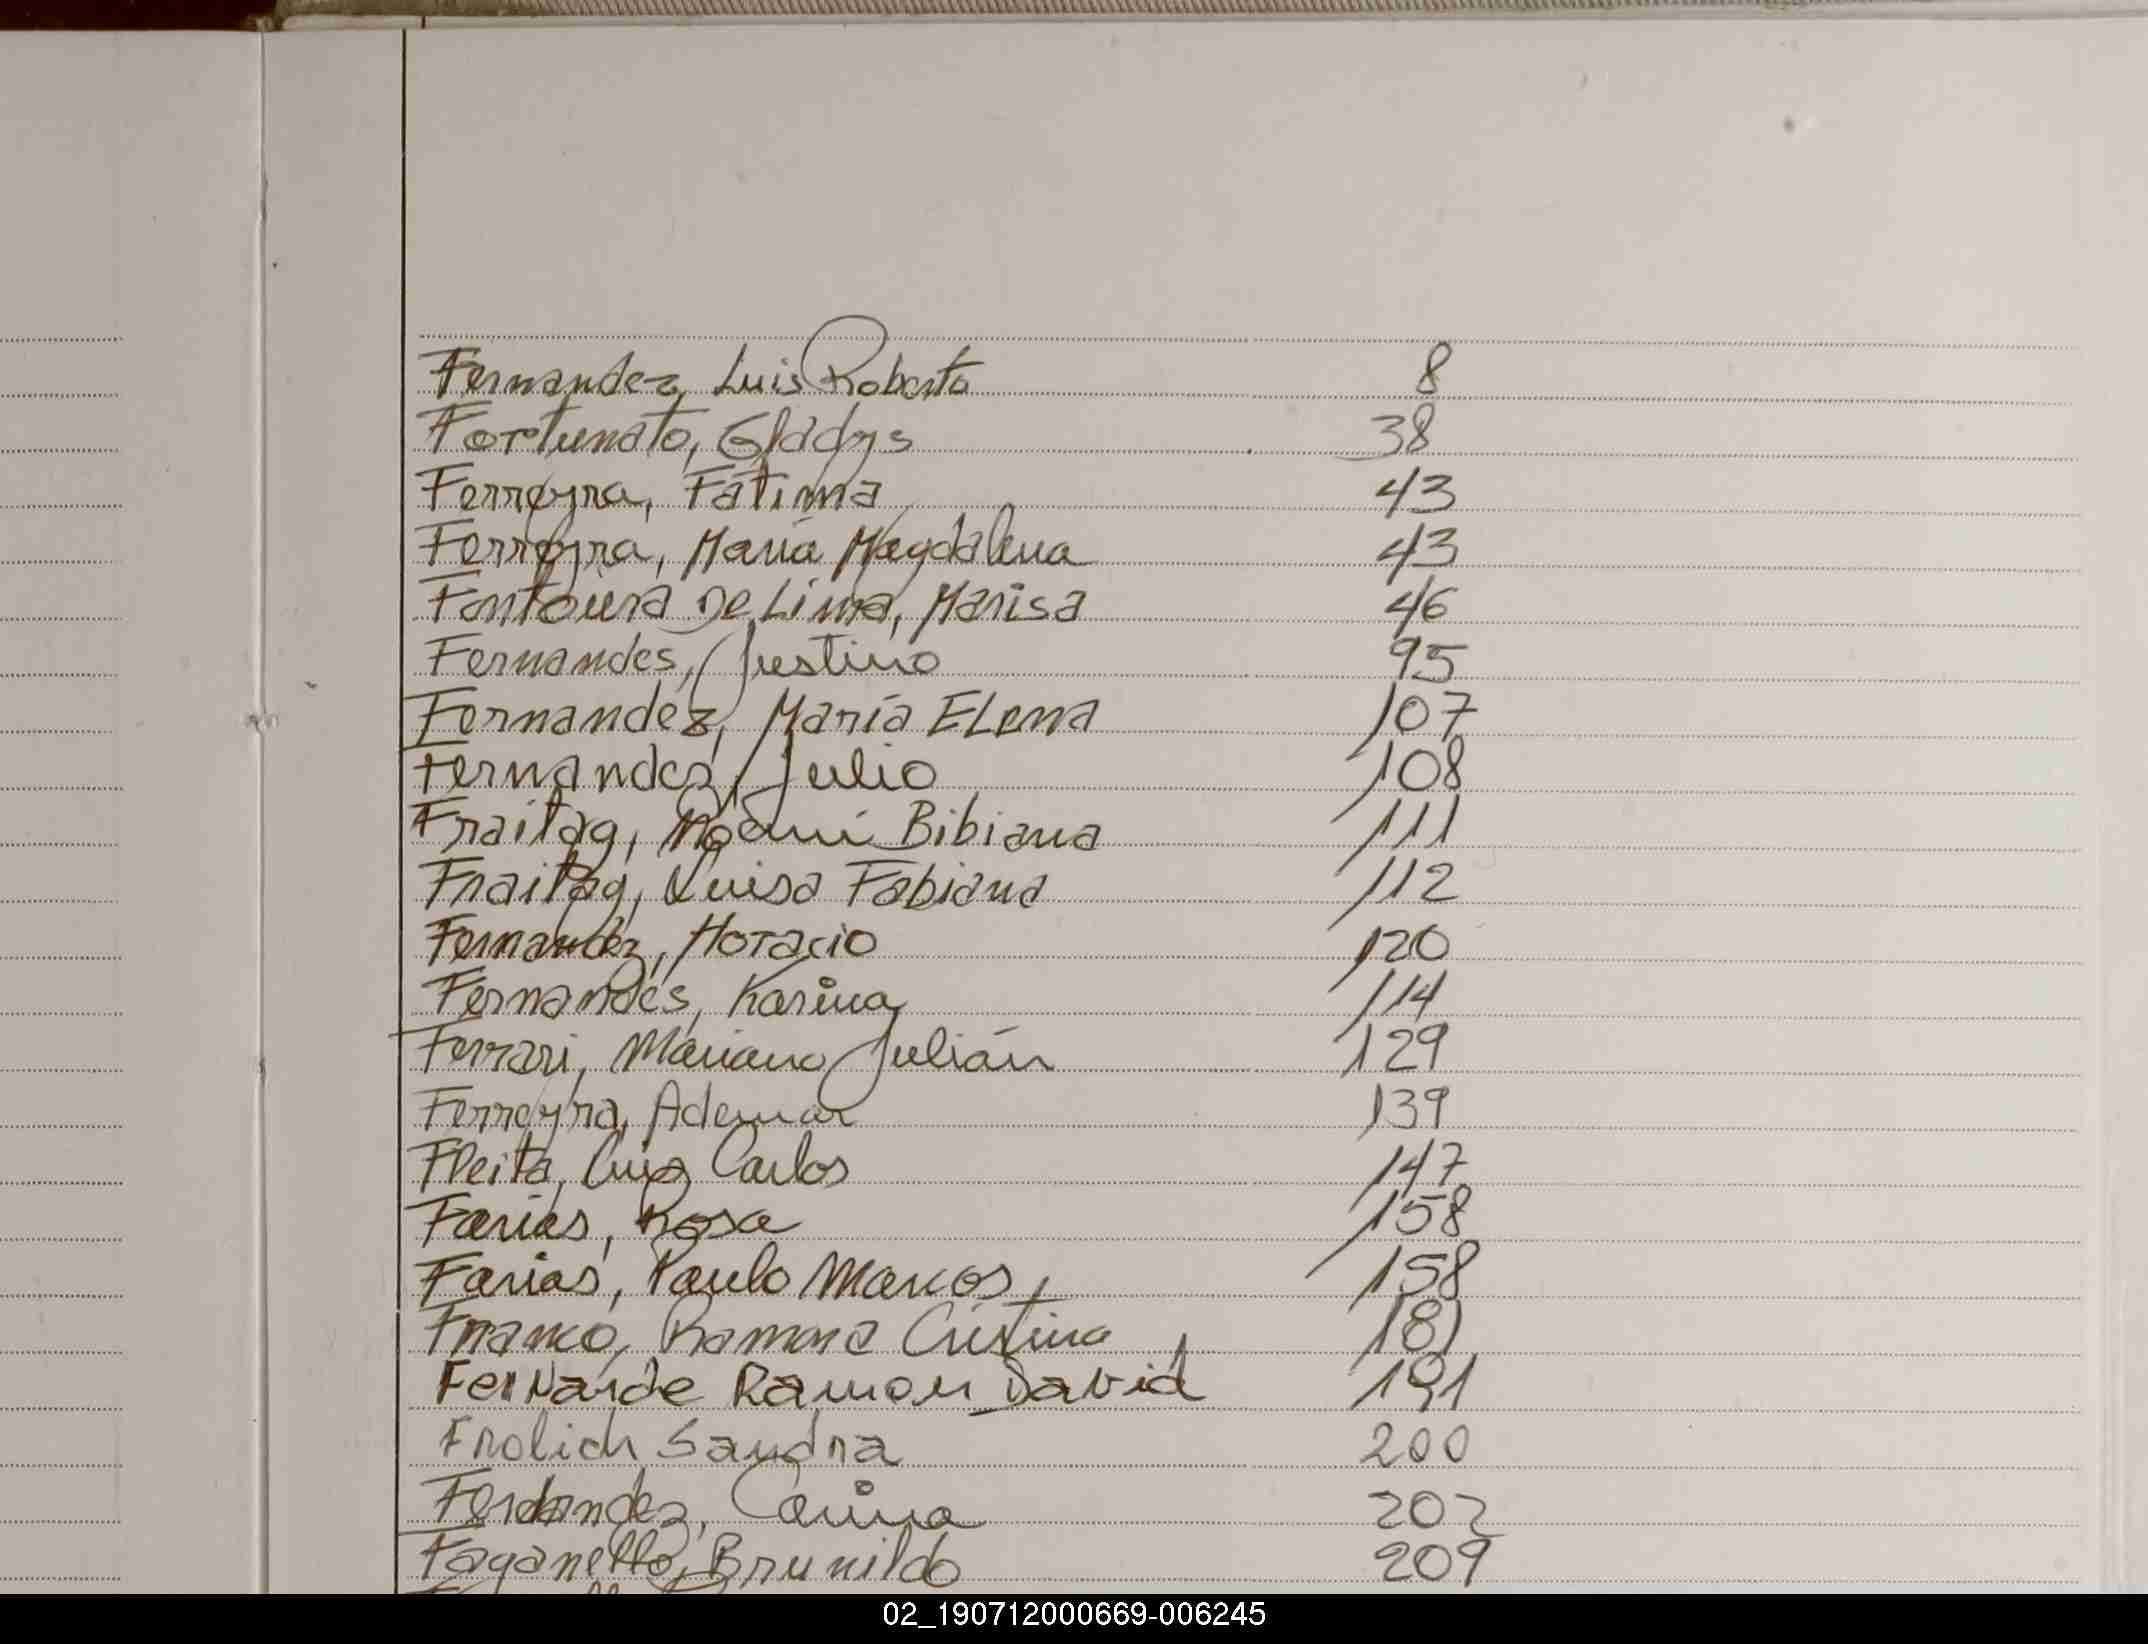 Fernandez, Luis Roberto 8
Fortunato, Gladys 38
Ferreyra, Fátima 43
Ferreyra, María Magdalena 43
Fontoura De Lima, Marisa 46
Fernandes, Justino 95
Fernandez, María ELena 107
Fernandez, Julio 108
Fraitag, Noemí Bibiana 111
Fraitag, Luisa Fabiana 112
Fernandez, Horacio 120
Fernandes, Karina 114
Ferrari, Mariano Julián 129
Ferreyra, Ademar 139
Fleita, Luiz Carlos 147
Farias, Rosa 158
Farias, Paulo Marcos 158
Franco, Ramona Cristina 181
Fernande Ramon David 191
Frolich Sandra 200
Fernandez, Carina 202
Faganello, Brunildo 209
02_190712000669-006245